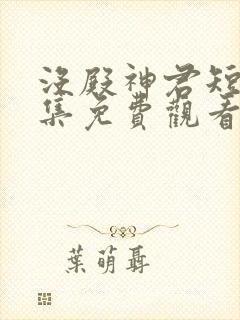 沒殿神君短
集免費觀看
葉萌聶